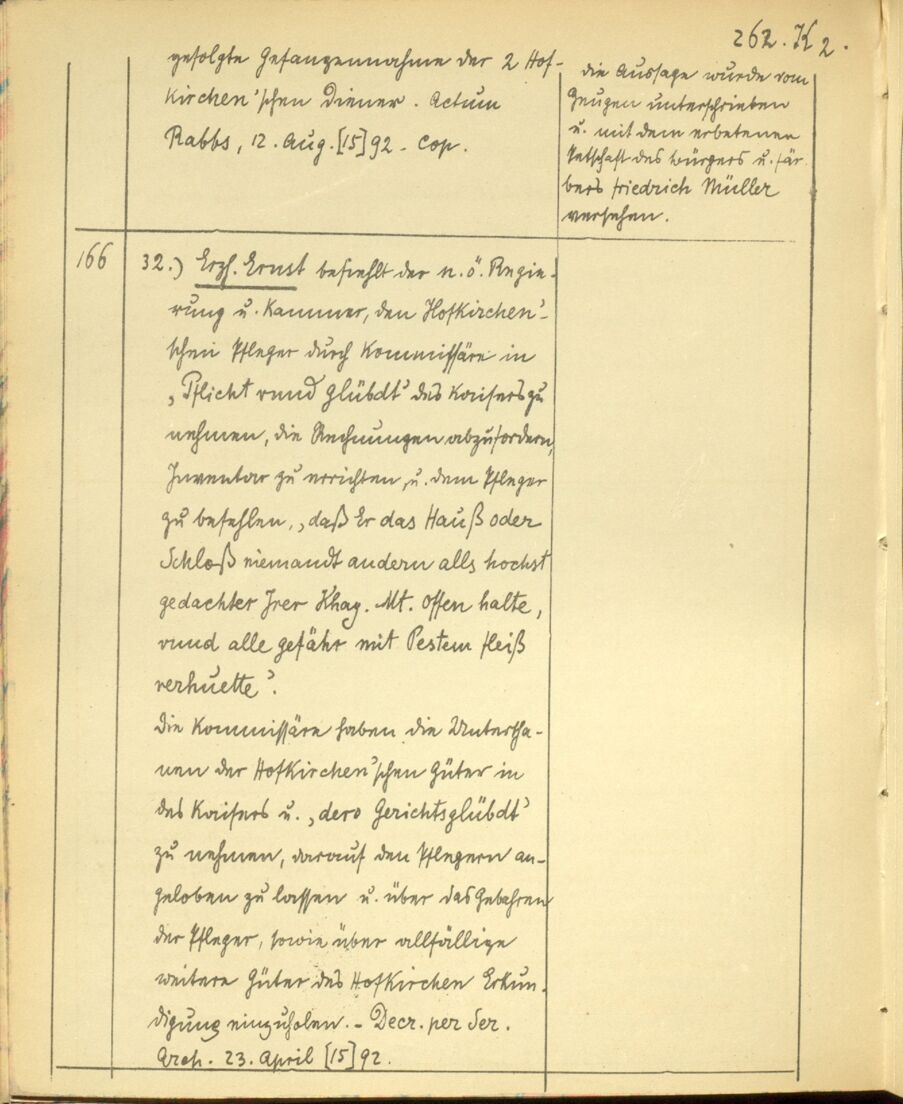 262. K 2.
gefolgte Gefangennahme der 2 Hof-
kirchen'schen Diener. Actum
Rabbs, 12. Aug. [15]92. Cop.
die Aussage wurde vom
Zeugen unterschrieben
u. mit dem erbetenen
Petschaft des Bürgers u. Fär-
bers Friedrich Müller
versehen.
166
32.) Erzh. Ernst befiehlt der n. ö. Regie-
rung u. Kammer, den Hofkirchen'-
schen Pfleger durch Kommissäre in
„Pflicht vnnd Glübdt' des Kaisers zu
nehmen, die Rechnungen abzufordern,
Inventar zu errichten, u. dem Pfleger
zu befehlen, „daß Er das Hauß oder
Schloß niemandt andern alls hochst
gedachter Irer Khay. Mt. offen halte,
vnnd alle gefähr mit Pestem fleiß
verhuette'.
Die Kommissäre haben die Untertha-
nen der Hofkirchen'schen Güter in
des Kaisers u. „dero Gerichtsglübdt'
zu nehmen, darauf den Pflegern an-
geloben zu lassen u. über das Gebahren
der Pfleger, sowie über allfällige
weitere Güter des Hofkirchen Erkun-
digung einzuholen. - Decr. per Ser.
Arch. 23. April [15]92.